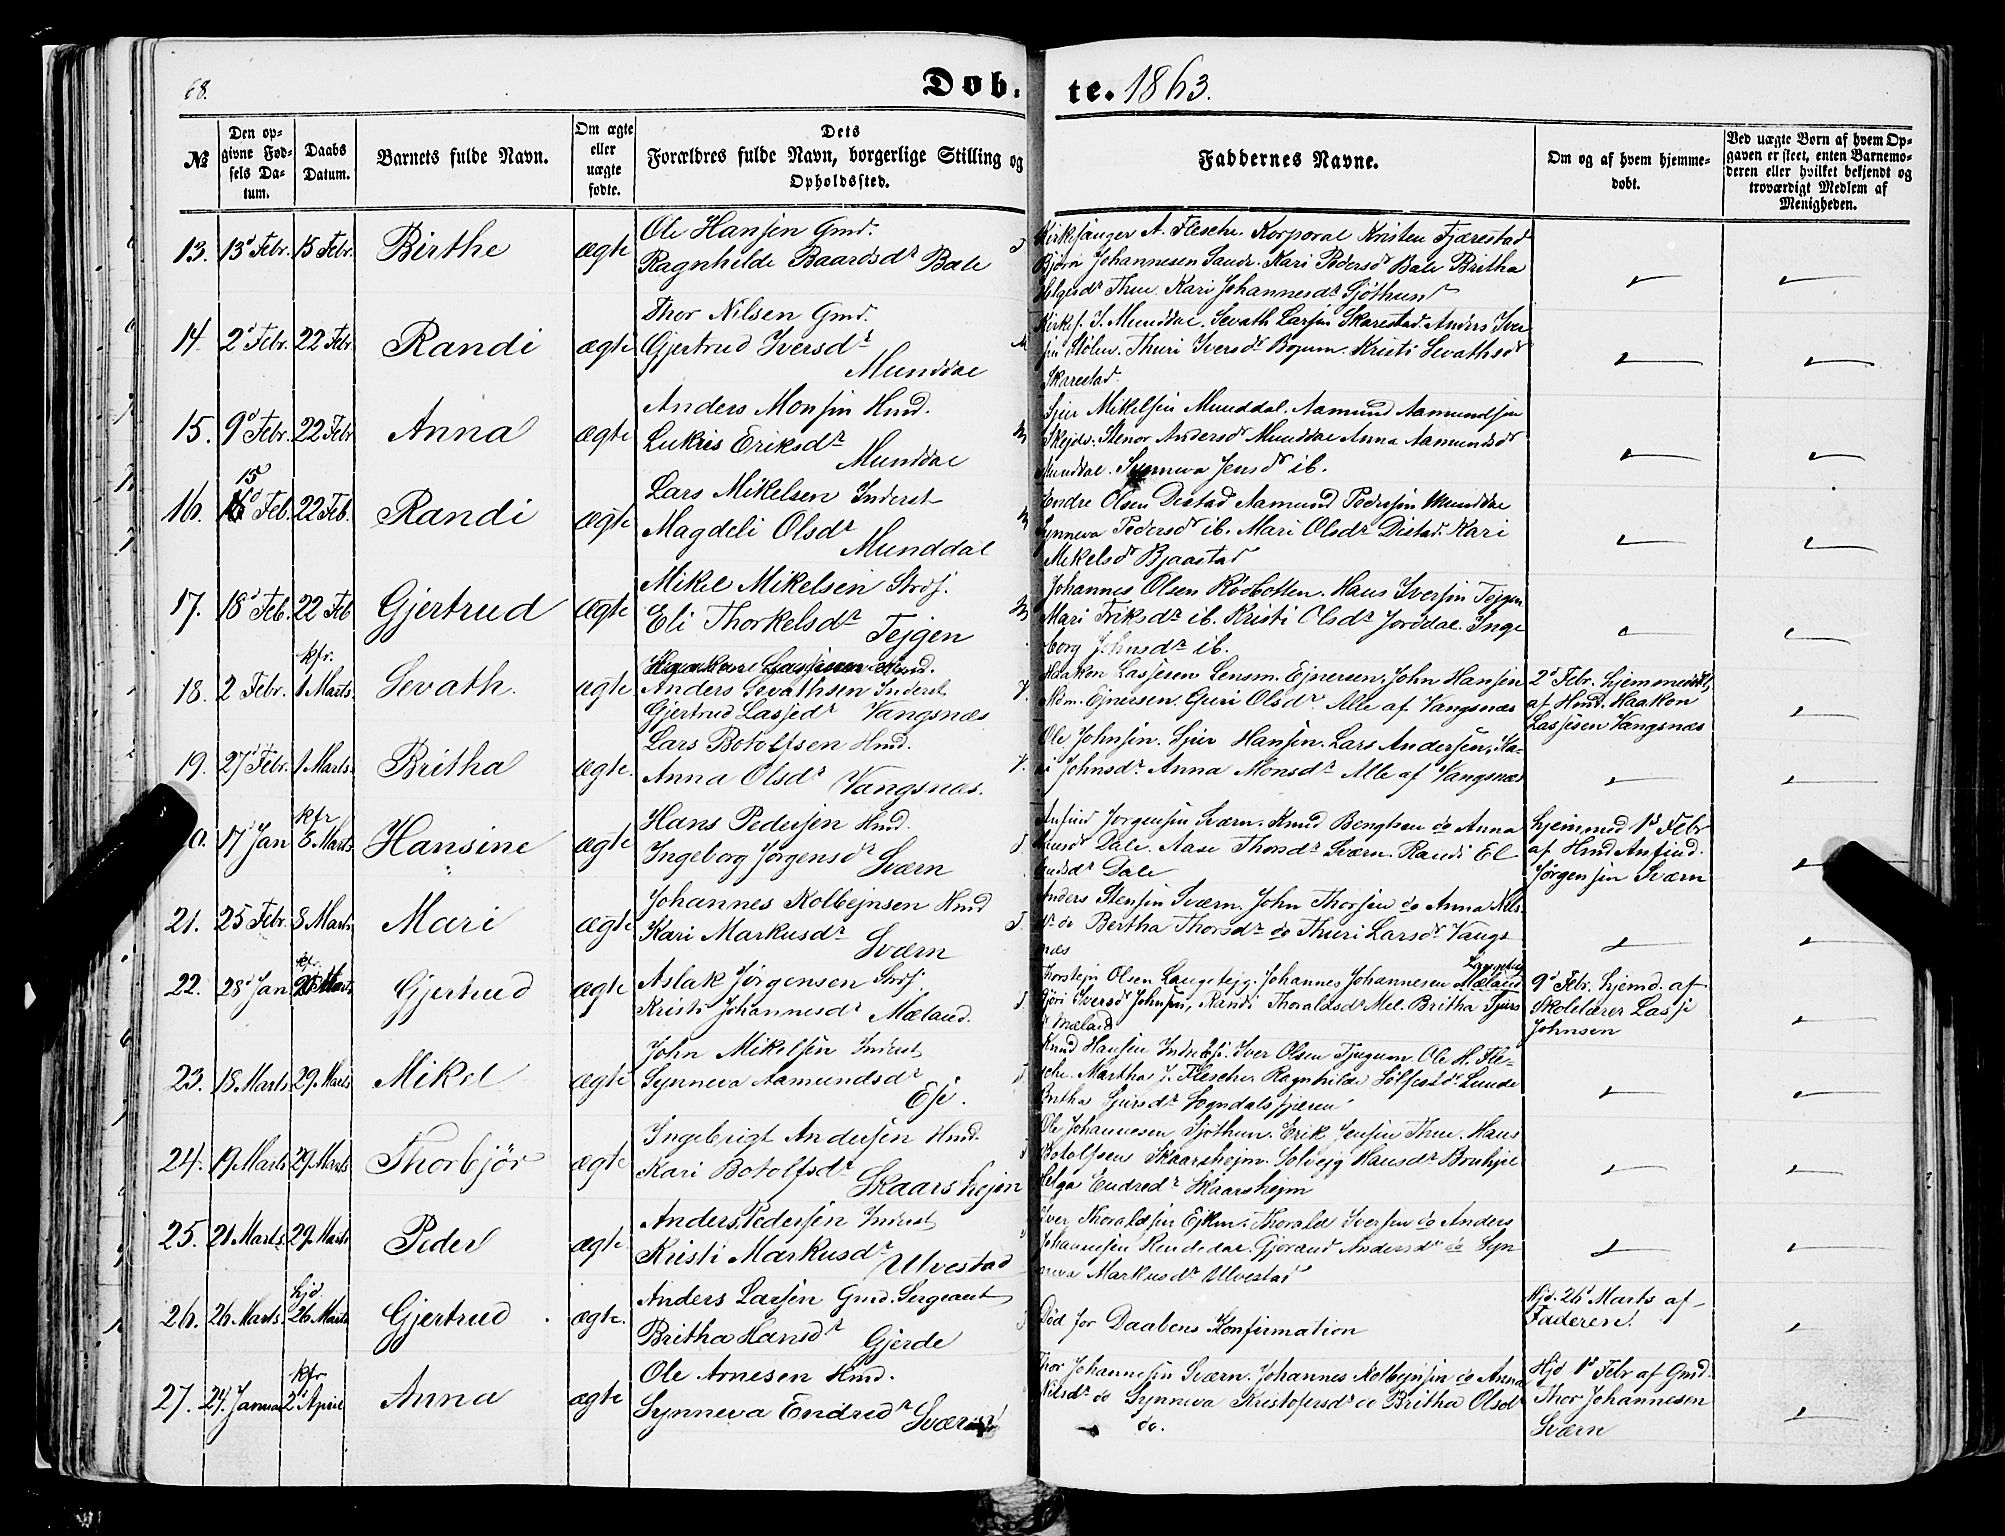 68.
Døb-
te. 1863.
№
Den op-
givne Fød-
sels Da-
tum.
Daabs
Datum.
Barnets fulde Navn.
Om ægte
eller
uægte
fødte.
Dets
Forældres fulde Navn, borgerlige Stilling og
Opholdssted.
Faddernes Navne.
Om og af hvem hjemme-
døbt.
Ved uægte Børn af hvem Op-
gaven er skeet, enten Barnemo-
deren eller hvilket bekjendt og
troværdigt Medlem af
Menigheden.
13. 13d Febr. 15 Febr. Birthe ægte
Ole Hansen Gmd.
Ragnhilde Baardsdr Bale
Kirkesanger A. Flesche. Korporal Kristen Fjærestad
Bjørn Johannesen Sande. Kari Pedersdr Bale Britha
Helgesdr Thue. Kari Johannesdr Sjøthun
14. 2d Febr. 22 Febr Randi ægte
Thor Nilsen Gmd.
Gjertrud Iversdr
Munddal
Kirkes. J. Munddal. Sevath Larsen Skarestad. Anders Iver-
sen Stølen. Thuri Iversdr Bøyum. Kristi Sevathsdr
Skarestad.
15. 9d Febr. 22 Febr Anna ægte
Anders Monsen Hmd.
Lukris Eriksdr
Munddal
Sjur Mikelsen Munddal. Aamund Aamundsen
Skejde. Stenor Andersdr Munddal Anna Aamundsdr
Munddal. Synneva Jensdr ib.
15
16. 16d Feb. 22 Feb. Randi ægte
Lars Mikelsen Inderst
Magdeli Olsdr
Munddal
Endre Olsen Distad Aamund Pedersen Munddal
Synneva Pedersdr ib. Mari Olsdr Distad. Kari
Mikelsdr Bjaastad
17. 18d Feb. 22 Feb Gjertrud ægte
Mikel Mikelsen Strsj.
Eli Thorkelsdr Tejgen
Johannes Olsen Rødbotten. Hans Iversen Tejgen
Mari Eriksdr ib. Kristi Olsdr Jorddal. Inge
borg Johnsdr ib.
kfr.
18. 2 Febr. 1 Marts. Sevath. ægte
Anders Sevathsen Inderst.
Gjertrud Lassedr Vangsnæs
Haakon Lassesen Lensm. Ejnersen. John Hansen
Mdm. Ejnersen. Guri Olsdr. Alle af Vangsnæs
2d Febr. hjemmedøbt,
af Hmd. Haakon
Lassesen Vangsnæs
19. 27d Febr. 1 Marts. Britha ægte.
Lars Botolfsen Hmd.
Anna Olsdr Vangsnæs.
Ole Johnsen. Sjur Hansen. Lars Andersen. Ka-
ri Johnsdr. Anna Monsdr. Alle af Vangsnæs
kfr
17 Jan 8 Marts. Hansine ægte
Hans Pedersen Hmd.
Ingeborg Jørgensdr Sværn
Anfind Jørgensen Sværn. Knud Bengtsen do Anna
Dale. Aase Thorsdr Sværn. Randi El
Dale
hjemmed 1d Febr
af Hmd Anfind.
Jørgensen Sværn
21. 25 Febr. 8 Marts. Mari ægte
Johannes Kolbejnsen Hmd
Kari Markusdr
Sværn
Anders Stensen Sværn. John Thorsen do Anna Nils-
dr do Bertha Thorsdr do Thuri Larsdr Vangs
næs
kfr.
22. 28d Jan Gjertrud ægte
Aslak Jørgensen Strsj.
Kristi Johannesdr Mæland.
Thorstejn Olsen Langetejg. Johannes Johannesen Mæland
Gjøri Iversdr Johnsen, Randi Thoraldsdr Mel. Britha Sjurs
dr Mæland
9d Febr. hjemd. af
Skolelærer Lasse
Johnsen
23. 18 Marts. 29 Marts Mikel ægte
John Mikelsen Inderst
Synneva Aamundsdr
Ese.
Knud Hansen Indre Ese. Iver Olsen Tjugum. Ole H. Fle-
sche. Martha J. Flesche. Ragnhilde Sølfestdr Lunde
Britha Sjursdr Sogndalsfjæren
24. 19 Marts 29 Marts Thorbjør ægte
Ingebrigt Andersen Hmd.
Kari Botolfsdr
Skaarshejm
Ole Johannesen Sjøthun. Erik Jensen Thue. Hans
Botolfsen Skaarshejm. Solvejg Hansdr
Helga Endredr Skaarshejm
25. 21 Marts. 29 Marts Peder ægte.
Anders Pedersen Inderst
Kristi Markusdr Ulvestad
Iver Thoraldsen Ejken. Thorald Iversen do Anders
Johannesen Rendedal. Gjørand Andersdr do Syn
neva Markusdr Ulvestad
hjd.
26. 26 Marts. 26 Marts Gjertrud . ægte.
Anders Larsen Gmd. Sergeant
Britha Hansdr Gjerde
Død før Daabens Konfirmation
Hjd. 26d Marts af
Faderen.
kfr
27. 24. Januar 2d April Anna ægte
Ole Arnesen Hmd.
Synneva Endredr Sværn
Thor Johannesen Sværn. Johannes Kolbejnsen do Anna
Nilsdr do Synneva Kristofersdr do Britha Olsdr
do.
Hjd 1d Febr af Gmd.
Thor Johannesen
Sværn